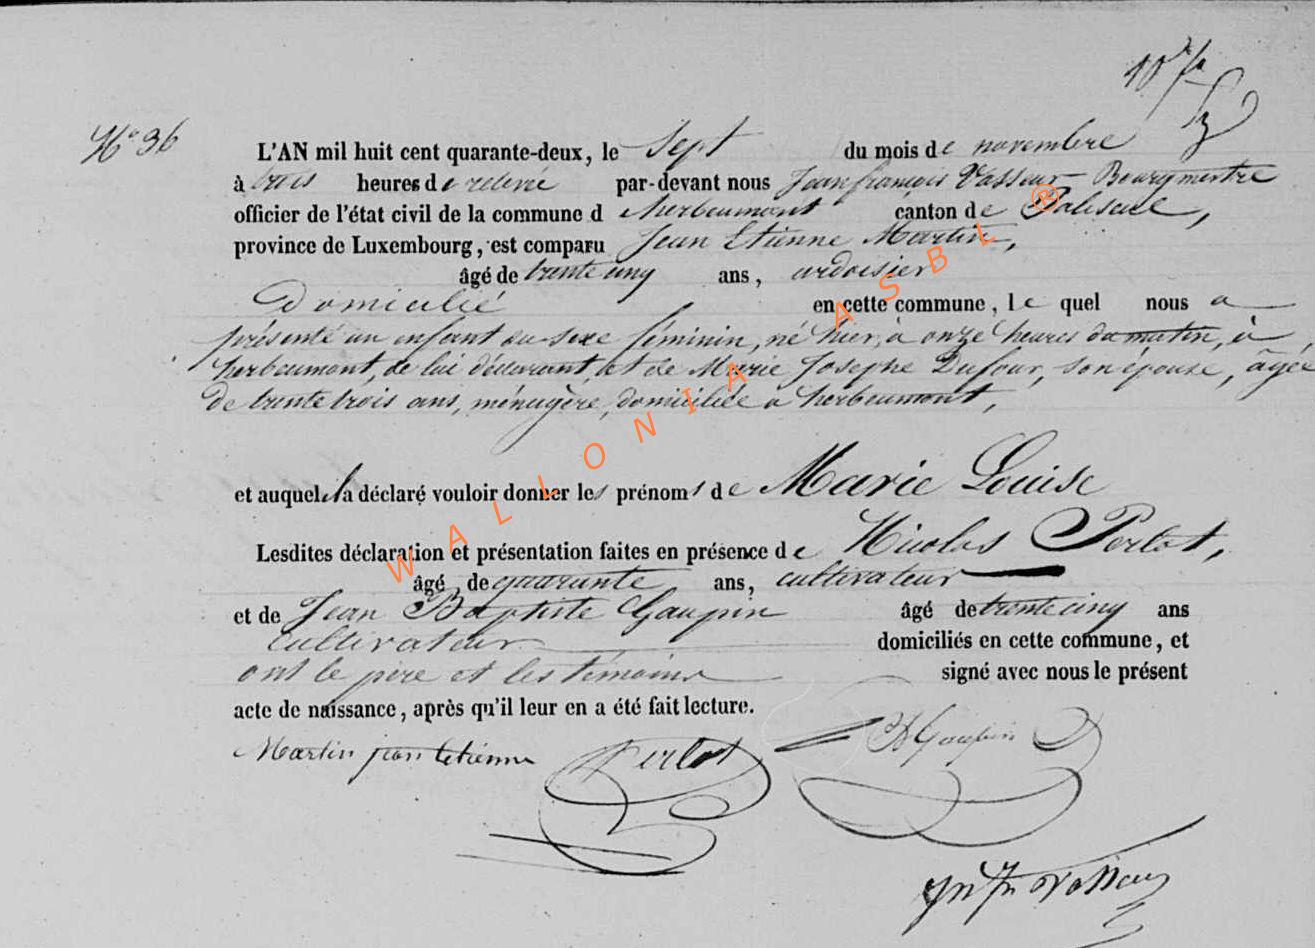 N° 36
L'AN mil huit cent quarante-deux, le Sept du mois de novembre
à trois heures de relevée par-devant nous Jean françois Vasseur Bourgmestre
officier de l'état civil de la commune d herbeumont canton de Paliseul,
province de Luxembourg, est comparu Jean Etienne Martin,
âgé de trente cinq ans, ardoisier
Domicilié en cette commune, le quel nous a
présenté un enfant du sexe féminin, né hier, à onze heures du matin, à
herbeumont, de lui déclarant, et de Marie Josephe Dufour, son épouse, âgée
de trente trois ans, ménagère, domiciliée à herbeumont,
et auquel il a déclaré vouloir donner les prénoms de Marie Louise
Lesdites déclaration et présentation faites en présence de Nicolas Perlot,
âgé de quarante ans, cultivateur
et de Jean Baptiste Goupin âgé de trente cinq ans
cultivateur domiciliés en cette commune, et
ont le père et les témoins signé avec nous le présent
acte de naissance, après qu'il leur en a été fait lecture.
Martin jean etienne Perlot Goupin
WALLONIA ASBL ®